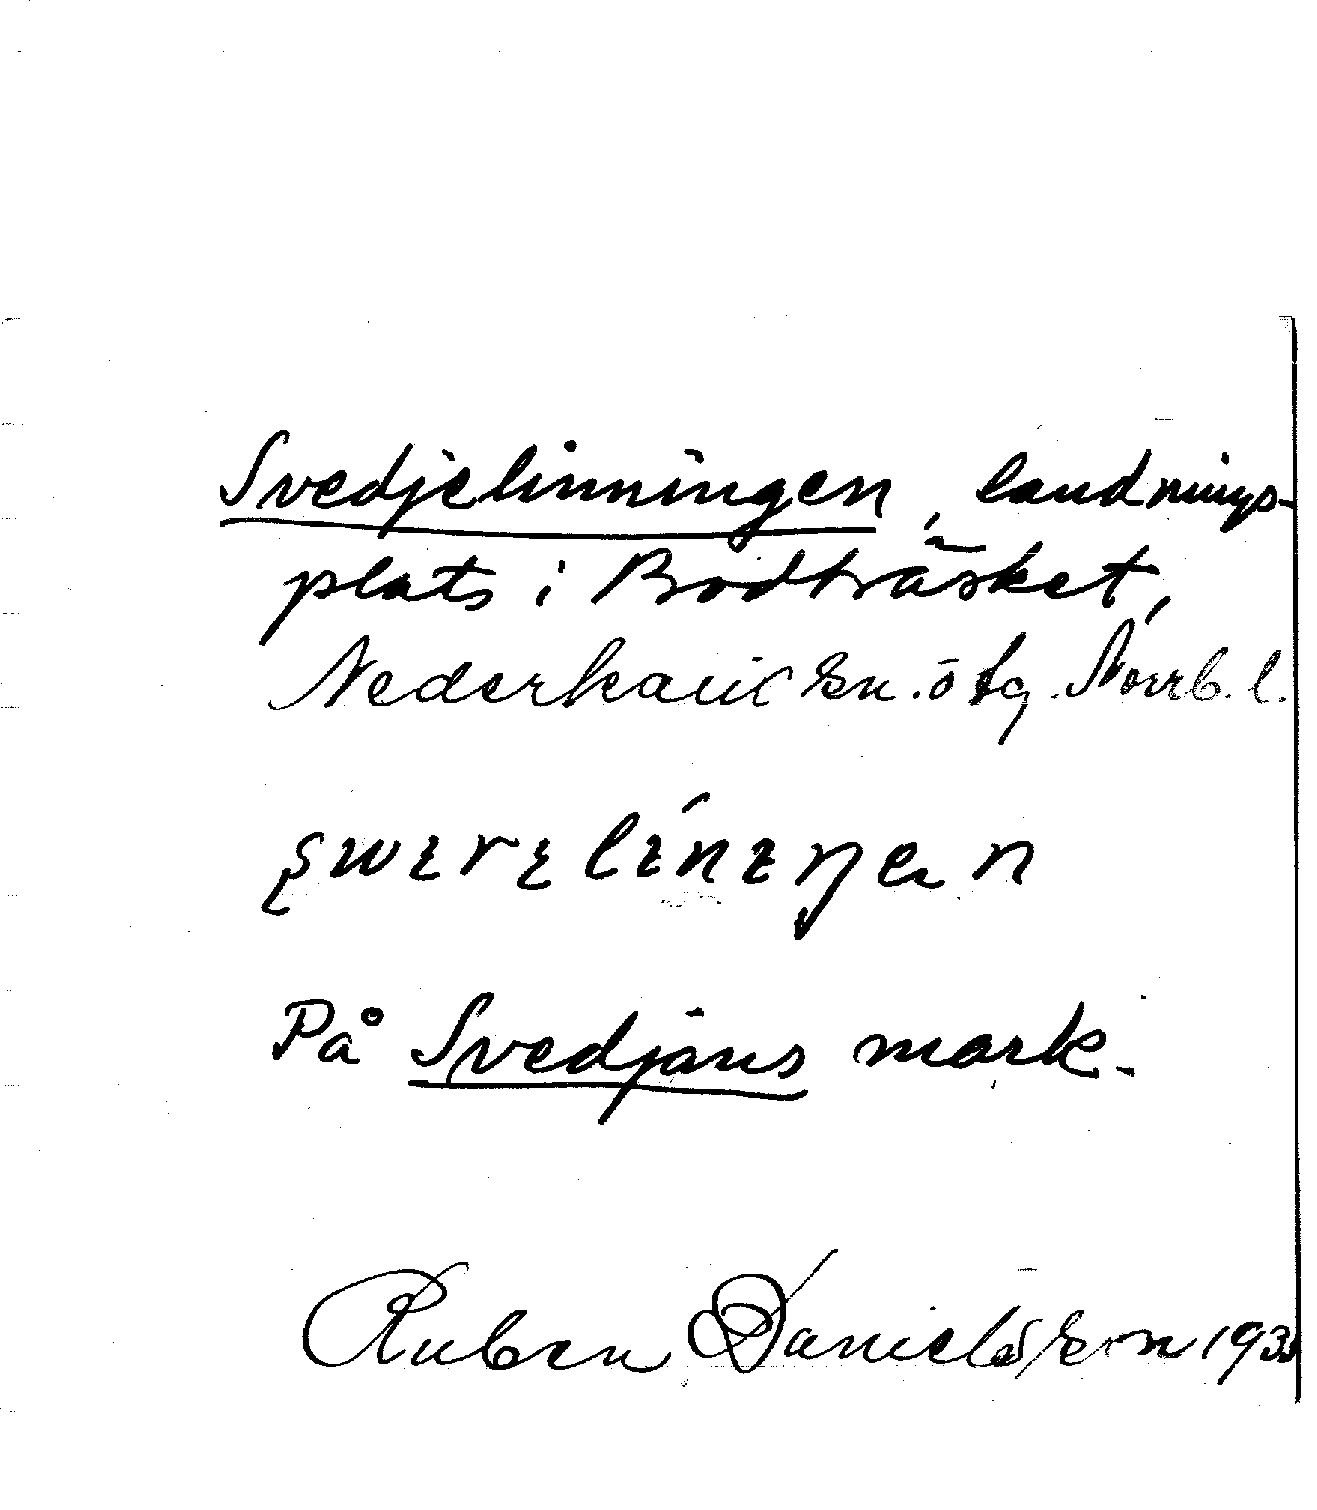 Svedjelinningen, landnings-
plats i Brodträsket,
Nederkalix sn. ö tg. Norrb. l.
På Svedjans mark.
Ruben Danielsson 193